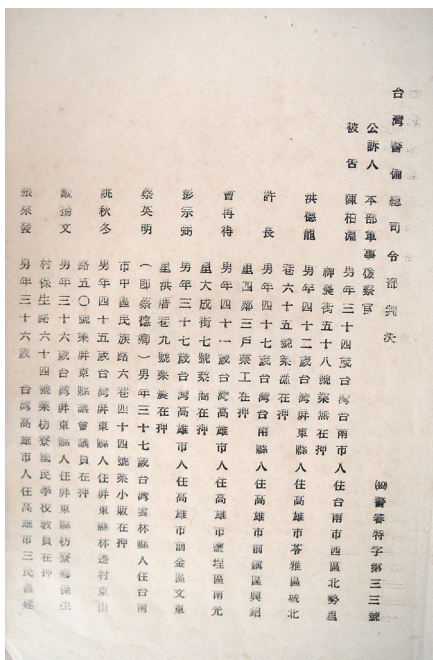 台灣警備總司令部判決
警審特字第三三號
公訴人　本部軍事檢察官
被告　陳柏淵　男年三十四歲台灣台南市人住台南市西區北勢里
神農街五十八號業無在押
洪德龍　男年四十二歲台灣屏東縣人住高雄市苓雅區城北
巷六十五號業漁在押
許長　男年四十七歲台灣台南縣人住高雄市前鎮區興
里四鄰三戶業工在押
曹再得　男年四十一歲台灣高雄市人住高雄市鹽埕區南光
里大成街七號業商在押
彭示弼　男年三十七歲台灣高雄市人住高雄市前金區文東
里洪厝巷九號業農在押
蔡英明　（即蔡德卿）男年三十七歲台灣雲林縣人住台南
市中區民族路六巷四十四號業小販在押
姚秋冬　男年四十五歲台灣屏東縣人住屏東縣林邊村東山
路五〇號業屏東縣議會議員在押
戴揚文　男年三十六歲台灣屏東縣人住屏東縣枋寮鄉保生
村保生路六十四號業枋寮國民學校教員在押
張榮發　男年三十六歲　台灣高雄市人住高雄市三民區建